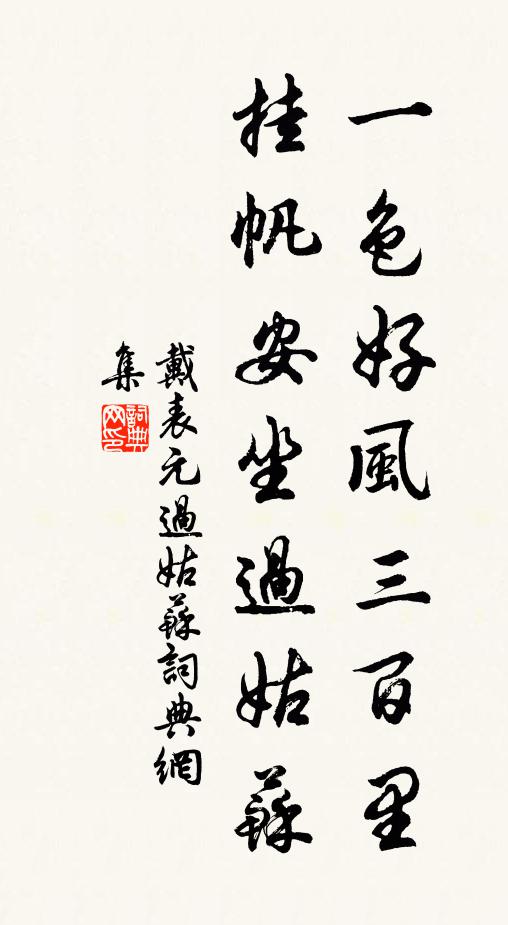 一色好風三百里
挂帆安坐過姑蘇
戴表元過姑蘇詞典網
集
詞典网印